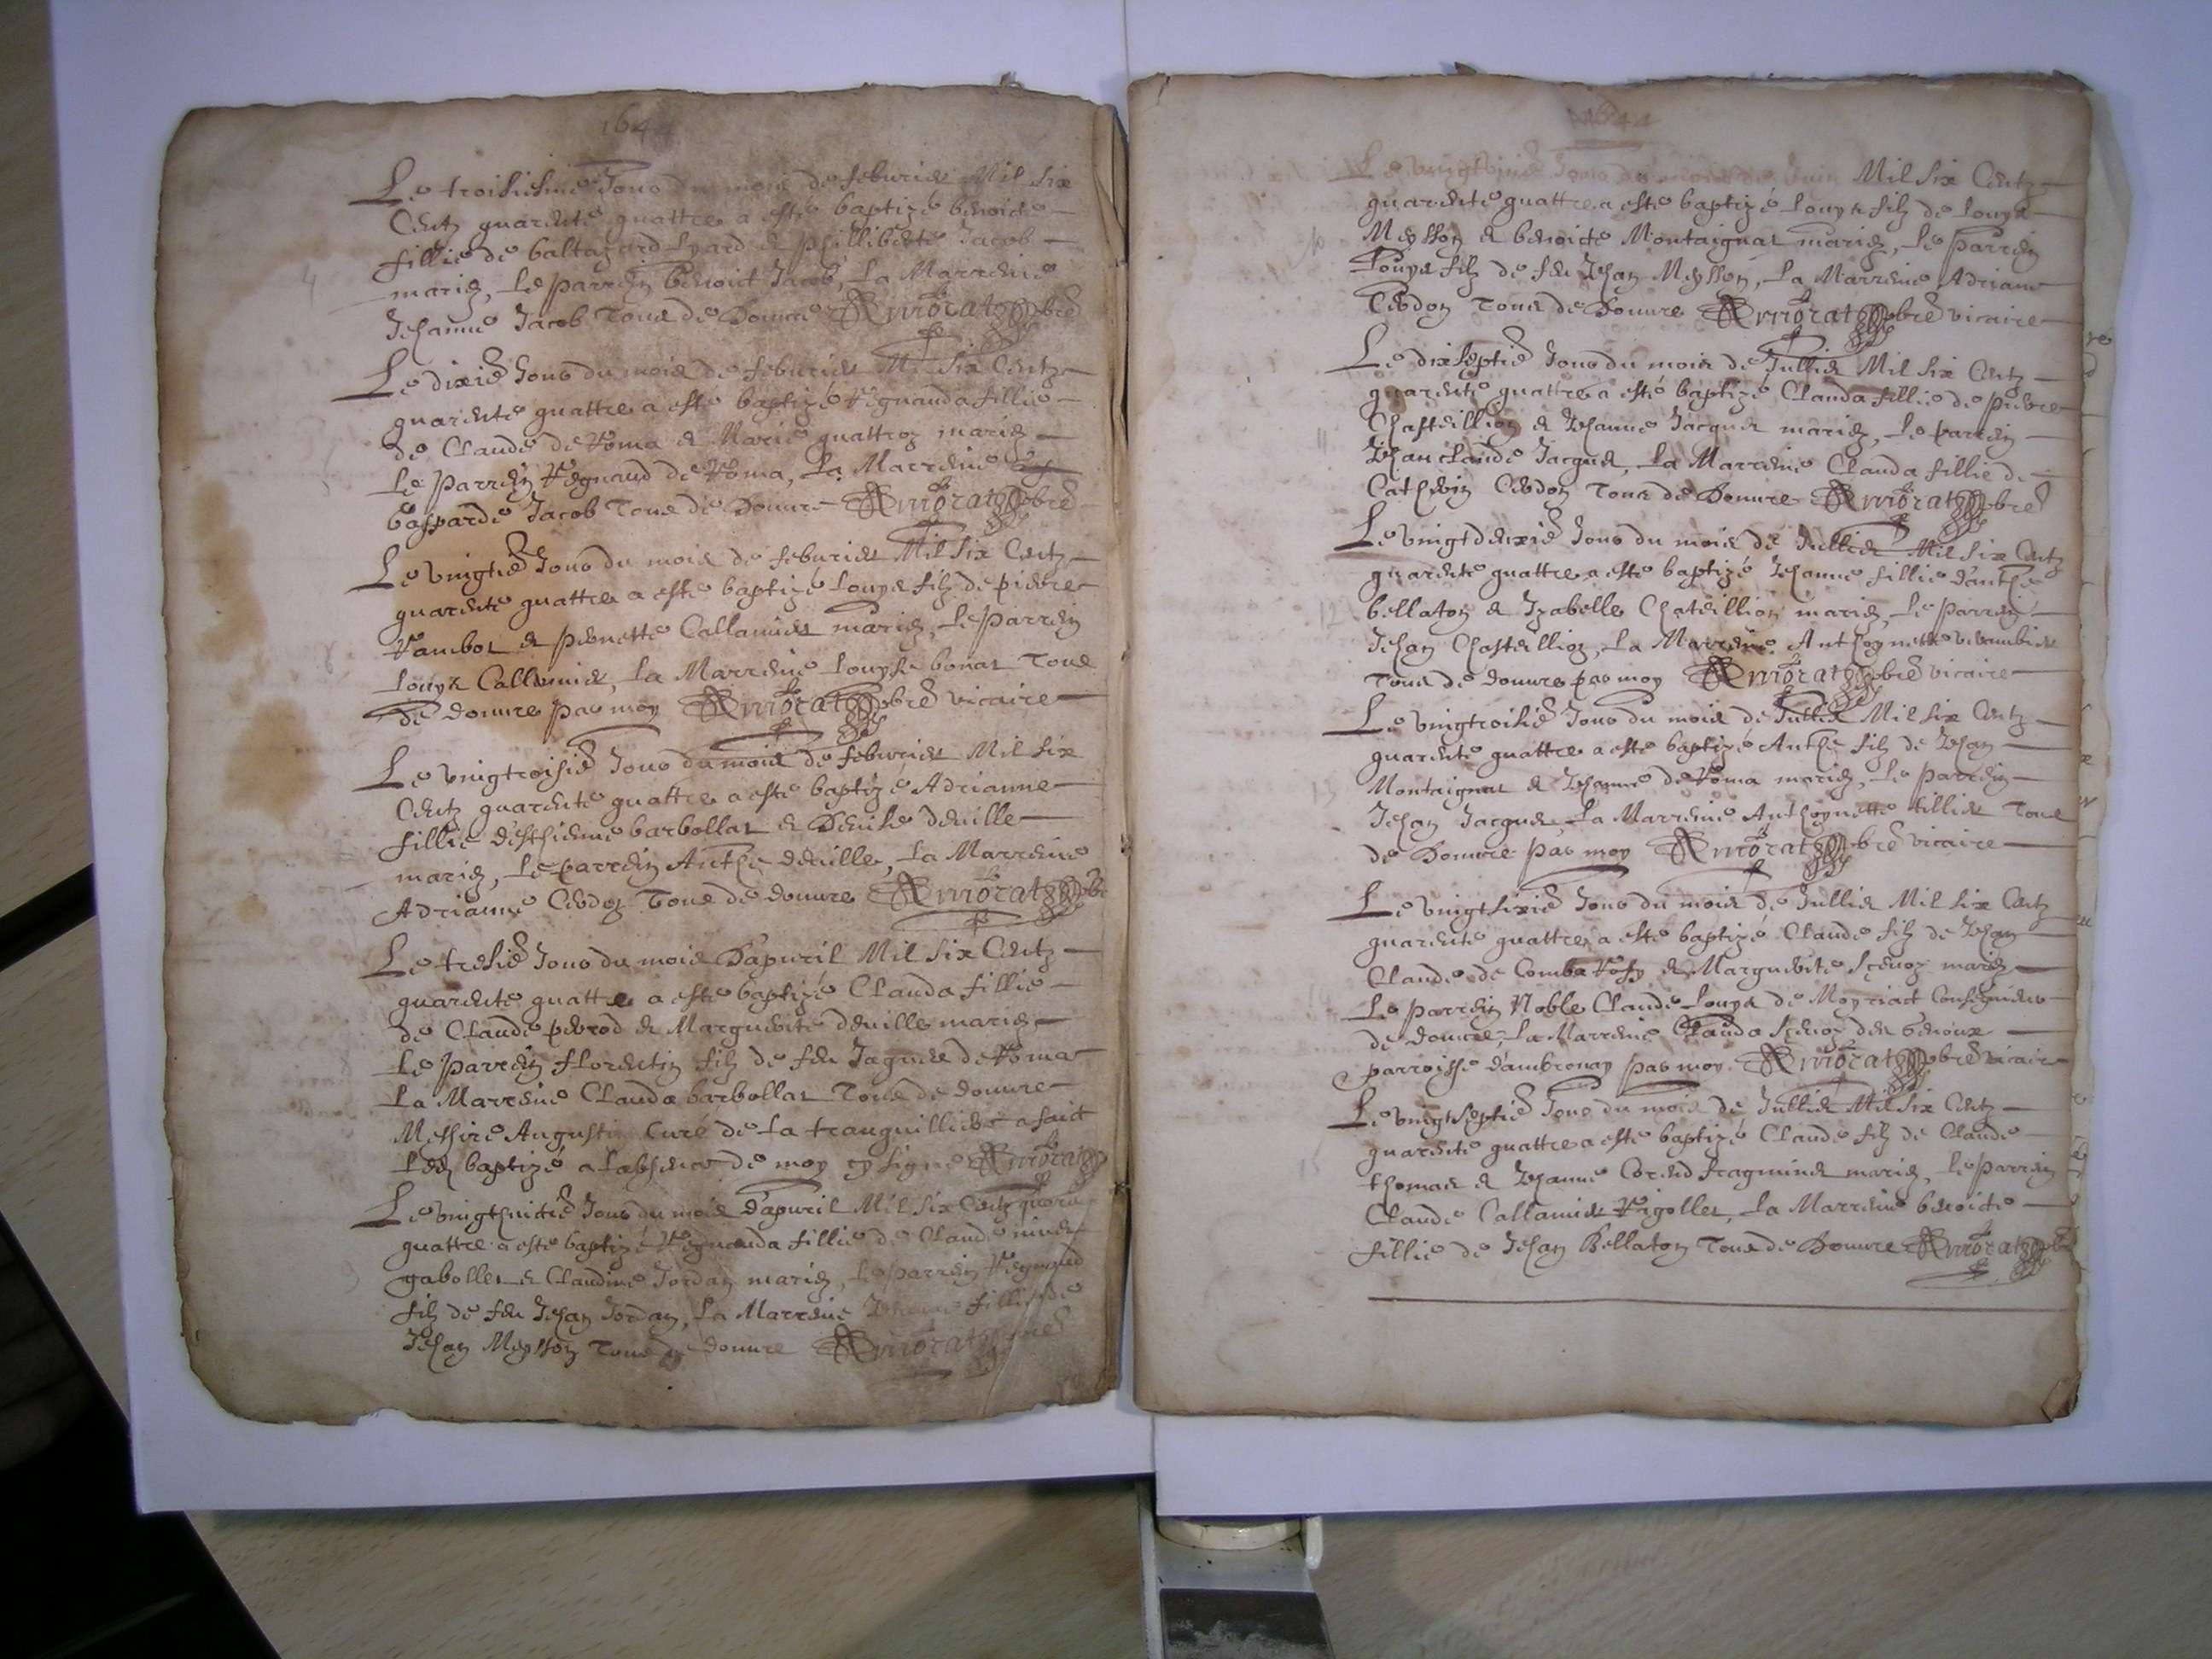 1644
Le troisiesme Jour du mois de feburier Mil six
Centz quarente quattre a esté baptizé benoicte
fillie de baltazard Lyard et phillibertè Jacob
mariez, le parrein benoict Jacob, la Marreine
Jehanne Jacob Tous de Douure
Le dixie Jour du mois de feburier Mil six Centz
quarente quattre a esté baptizé Regnauda fillie
de Claude de Roma et Marie quattroz mariez
le parrein Regnaud de Roma, la Marreine
Gasparde Jacob Tous de Douure
Le vingtie Jour du mois de feburier Mil six Centz
quarente quattre a esté baptizé Louys filz de pierre
et pernette Callamier mariez, le parrein
Louys Callamier, la Marreine Louyse bonat Tous
de Douure par moy vicaire
Le vingtroisie Jour du mois de feburier Mil six
Centz quarente quattre a esté baptizé Adrianne
fillie d'esthienne barbollat et Denise deuille
mariez, le parrein Anthe deuille, la Marreine
Adrianne Cerdon Tous de Douure
Le tresie Jour du mois D'apuril Mil six Centz
quarente quattre a esté baptizé Clauda fillie
de Claude perrod et Marguerite deuille mariez
le parrein florentin filz de feu Jaques de Roma
la Marreine Clauda barbollat Tous de Douure
Messire Augustin Curé de la tranquilliere a faict
baptizé a l'absence de moy cy signé
Le vingthuictie Jour du mois d'apuril Mil six Centz
quattre a esté baptizé Regnauda fillie de Claude
gabollet et Claudine Jordan mariez, le parrein Regnaud
filz de feu Jehan Jordan, la Marreine fillie de
Jehan Meysson Tous de Douure
1644
Jour du mois de Juin Mil six Centz
quarente quattre a esté baptizé Louys filz de Louys
Meysson et benoicte Montaignat mariez, le parrein
Louys filz de feu Jehan Meysson, la Marreine Adrianne
Cerdon Tous de Douure vicaire
Le dixseptie Jour du mois de Jullier Mil six Centz
quarente quattre a esté baptizé Clauda fillie de pierre
Chasteillion et Jehanne Jacques mariez, le parrein
Jehan claude Jacques, la Marreine Clauda fillie de
Catherin Cerdon Tous de Douure
Le vingtdeuxie Jour du mois de Jullier Mil six Centz
quarente quattre a esté baptizé Jehanne fillie d'anthe
12 bellaton et Izabelle Chateillion mariez, le parrein
Jehan Chasteillion, la Marreine Anthoynette
Tous de douure par moy vicaire
Le vingtroisie Jour du mois de Jullier Mil six Centz
quarente quattre a esté baptizé Anthe filz de Jehan
13 Montaignat et Jehanne de Roma mariez, le parrein
Jehan Jacques, la Marreine Anthoynette tillier Tous
de Douure par moy vicaire
Le vingtsixie Jour du mois de Jullier Mil six Centz
quarente quattre a esté baptizé Claude filz de Jehan
Claude de Comba et Marguerite mariez
le parrein Noble Claude Louys de Moyriact Conseigneur
de Douure, la Marreine Clauda
parroisse d'ambronay par moy vicaire
Le vingtseptie Jour du mois de Jullier Mil six Centz
quarente quattre a esté baptizé Claude filz de Claude
thomas et Jehanne mariez, le parrein
Claude Callamier Rigollet, la Marreine benoicte
fillie de Jehan Bellaton Tous de Douure